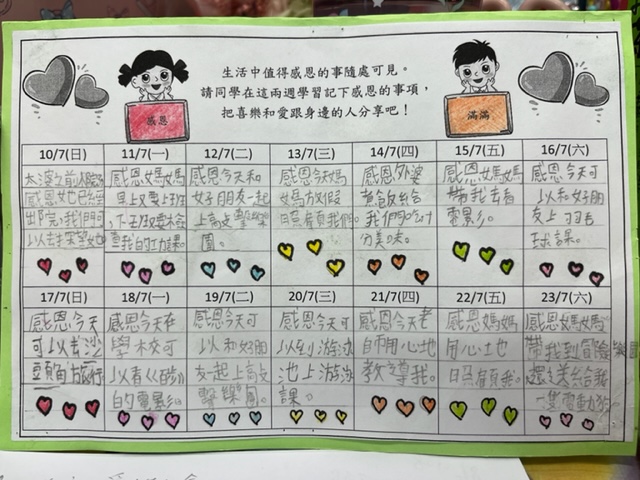 生活中值得感恩的事隨處可見。
請同學在這兩週學習記下感恩的事項，
把喜樂和愛跟身邊的人分享吧！
感恩
滿滿
10/7(日)
11/7(一)
12/7(二)
13/7(三)
14/7(四)
15/7(五)
16/7(六)
太婆之前入醫院
感恩她已經
出院，我們可
以去探望她
感恩媽媽
早上又要上班
，下班後要檢
查我的功課。
感恩今天和
好朋友一起
上高敲擊樂
團。
感恩今天媽
媽放假
照顧我們。
感恩外婆
煮飯給
我們吃，
十分美味。
感恩媽媽
帶我去看
電影。
感恩今天可
以和好朋
友上羽毛
球課。
17/7(日)
18/7(一)
19/7(二)
20/7(三)
21/7(四)
22/7(五)
23/7(六)
感恩今天
可以去沙
頭角旅行
感恩今天在
學校可
以看
的電影。
感恩今天可
以和好朋
友一起上高敲
擊樂團。
感恩今天可
以到游泳
池上游泳
課。
感恩今天老
師用心地
教導我。
感恩媽媽
用心地
照顧我。
感恩媽媽
帶我到冒險樂園
還送給我
一隻電動狗